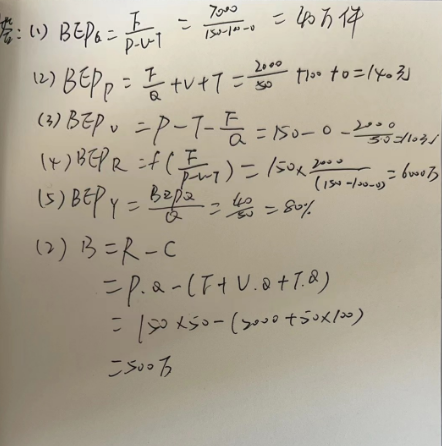 答:(1) BEPQ = F/(P-V-T) = 2000/(150-100-0) = 40万件
(2) BEPp = F/Q + V + T = 2000/50 + 100 + 0 = 140元
(3) BEPv = P - T - F/Q = 150 - 0 - 2000/50 = 110元
(4) BEPR = P(F/(P-V-T)) = 150 × 2000/(150-100-0) = 6000万
(5) BEPY = BEPQ/Q = 40/50 = 80%
(2) B = R - C
= P.Q - (F + V.Q + T.Q)
= 150 × 50 - (2000 + 50 × 100)
= 500万